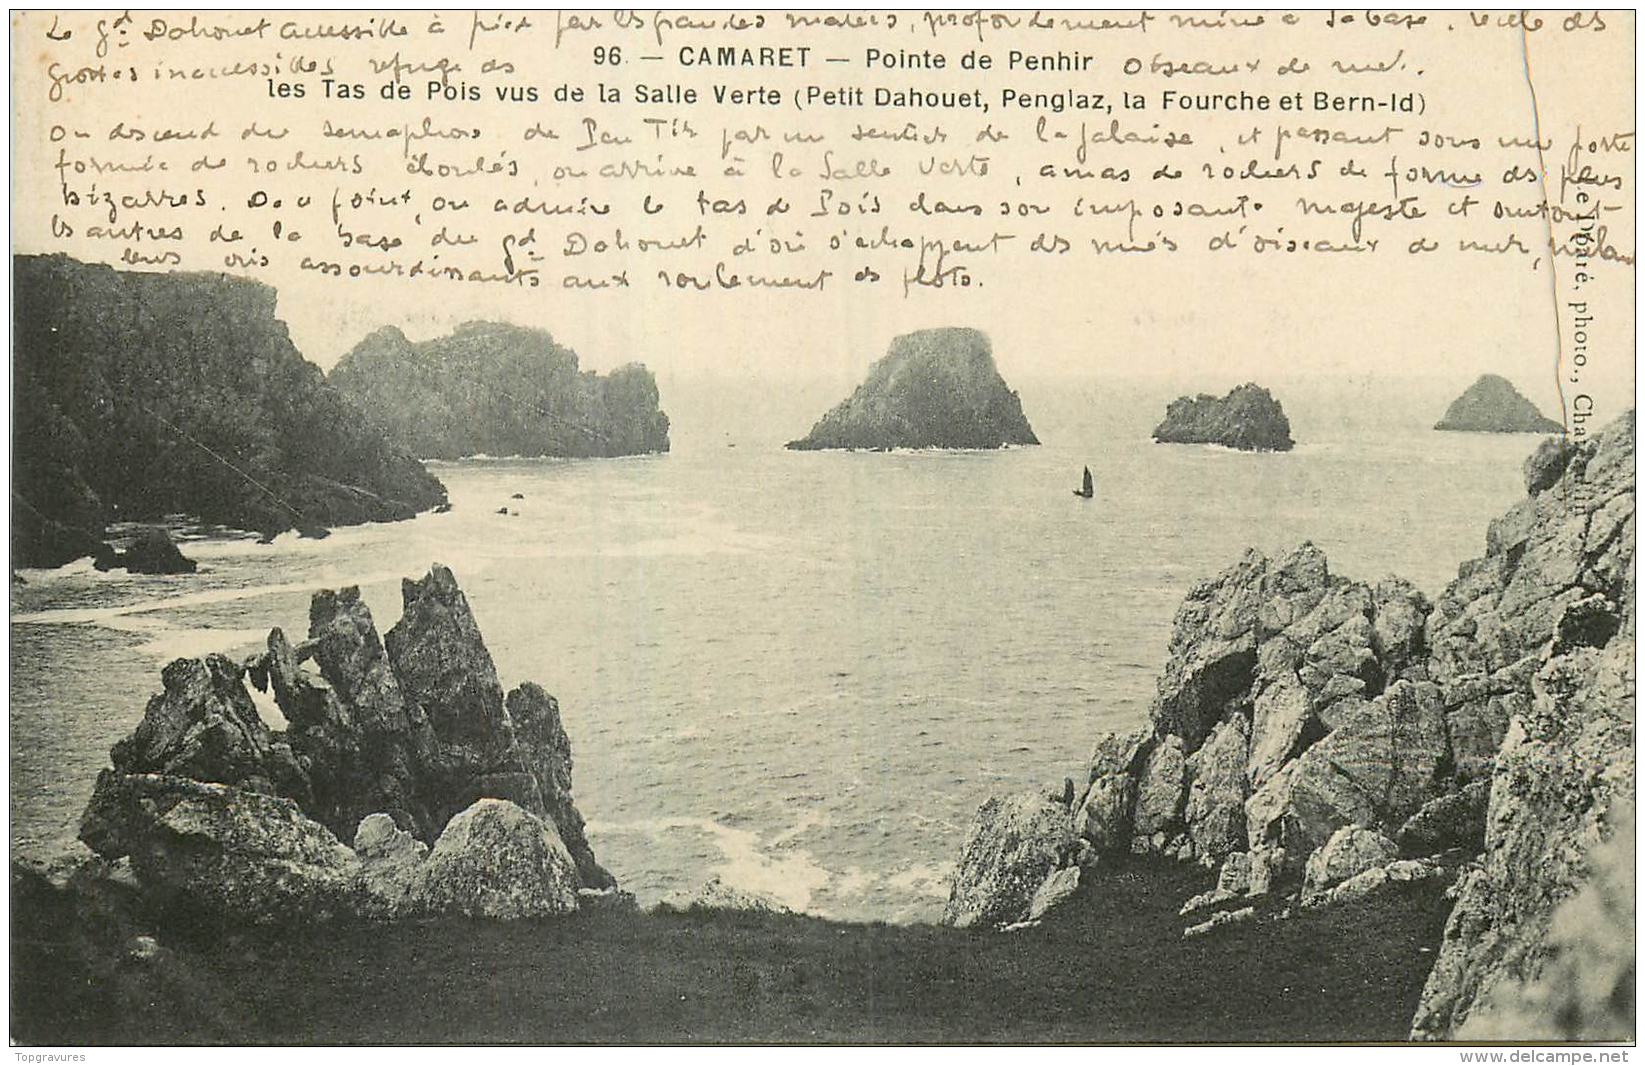 Le gd Dahouet accessible à pied par les grandes marées, profondément miné à sa base, recèle des
96. — CAMARET — Pointe de Penhir
grottes inaccessibles refuge des oiseaux de mer.
les Tas de Pois vus de la Salle Verte (Petit Dahouet, Penglaz, la Fourche et Bern-Id)
On descend du sémaphore de Pen Tir par un sentier de la falaise, et passant sous une porte
formée de rochers éboulés, on arrive à la Salle Verte, amas de rochers de forme des plus
bizarres. De ce point, on admire le tas de Pois dans son imposante majesté et surtout
les autres de la base du gd Dahouet d'où s'échappent des nuées d'oiseaux de mer, mêlant
leurs cris assourdissants aux roulement des flots.
photo.,
Topgravures
www.delcampe.net